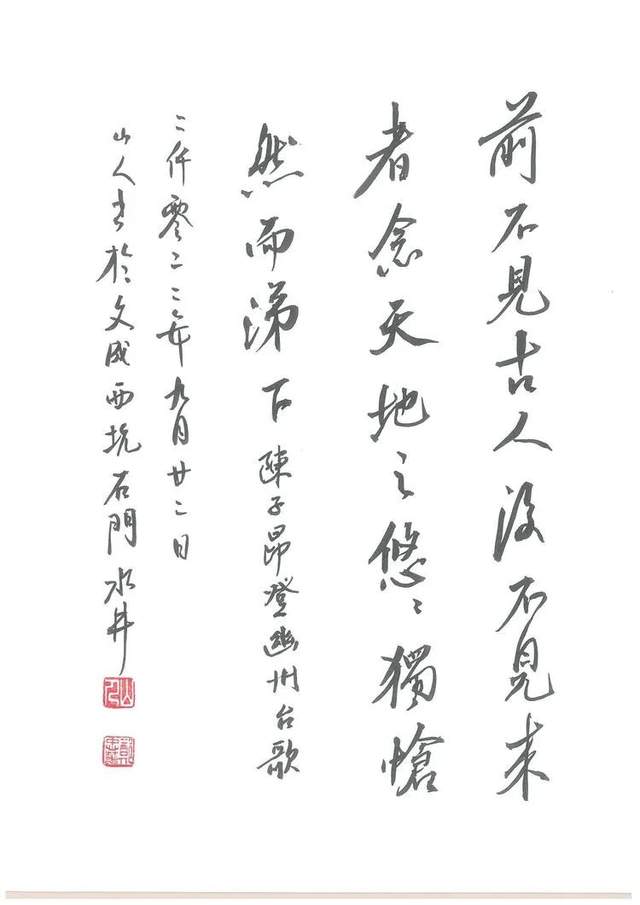 前不見古人後不見来
者念天地之悠々獨愴
然而涕下陳子昂登幽州台歌
二仟零二二年九月廿二日
山人书於文成西坑石門水井
山人